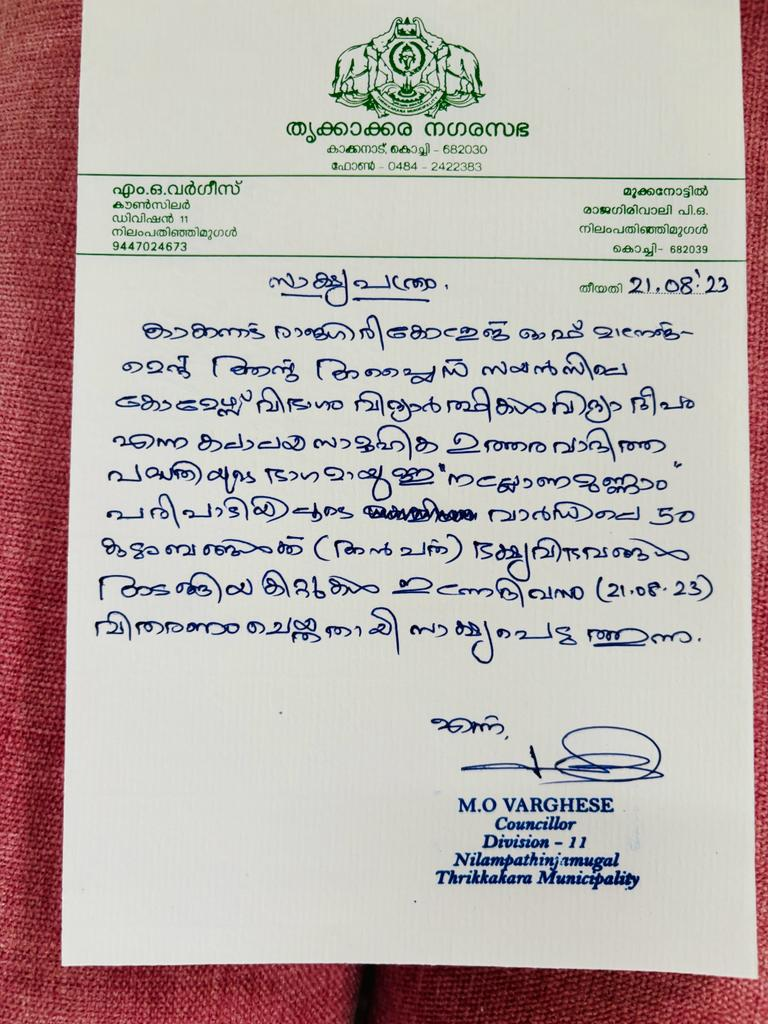 തൃക്കാക്കര നഗരസഭ
കാക്കനാട്, കൊച്ചി - 682030
ഫോൺ - 0484 - 2422383
എം.ഒ.വർഗീസ്
കൗൺസിലർ
ഡിവിഷൻ 11
നിലംപതിഞ്ഞിമുഗൾ
9447024673
മൂക്കനോട്ടിൽ
രാജഗിരിവാലി പി.ഒ.
നിലംപതിഞ്ഞിമുഗൾ
കൊച്ചി- 682039
സാക്ഷ്യപത്രം.
തീയതി 21.08.'23
കാക്കനാട് രാജഗിരി കോളേജ് ഓഫ് മാനേജ്-
മെന്റ് ആന്റ് അപ്ലൈഡ് സയൻസിലെ
കോമേഴ്സ് വിഭാഗം വിദ്യാർത്ഥികൾ വിദ്യാദീപം
എന്ന കലാലയ സാമൂഹിക ഉത്തരവാദിത്ത
പദ്ധതിയുടെ ഭാഗമായുള്ള "നല്ലോണമുണ്ണാം"
പരിപാടിയിലൂടെ വാർഡിലെ 50
കുടുംബങ്ങൾക്ക് (അൻപത്) ഭക്ഷ്യവിഭവങ്ങൾ
അടങ്ങിയ കിറ്റുകൾ ഇന്നേദിവസം (21.08.23)
വിതരണം ചെയ്തതായി സാക്ഷ്യപെടുത്തുന്നു.
എന്ന്,
M.O VARGHESE
Councillor
Division - 11
Nilampathinjamugal
Thrikkakara Municipality